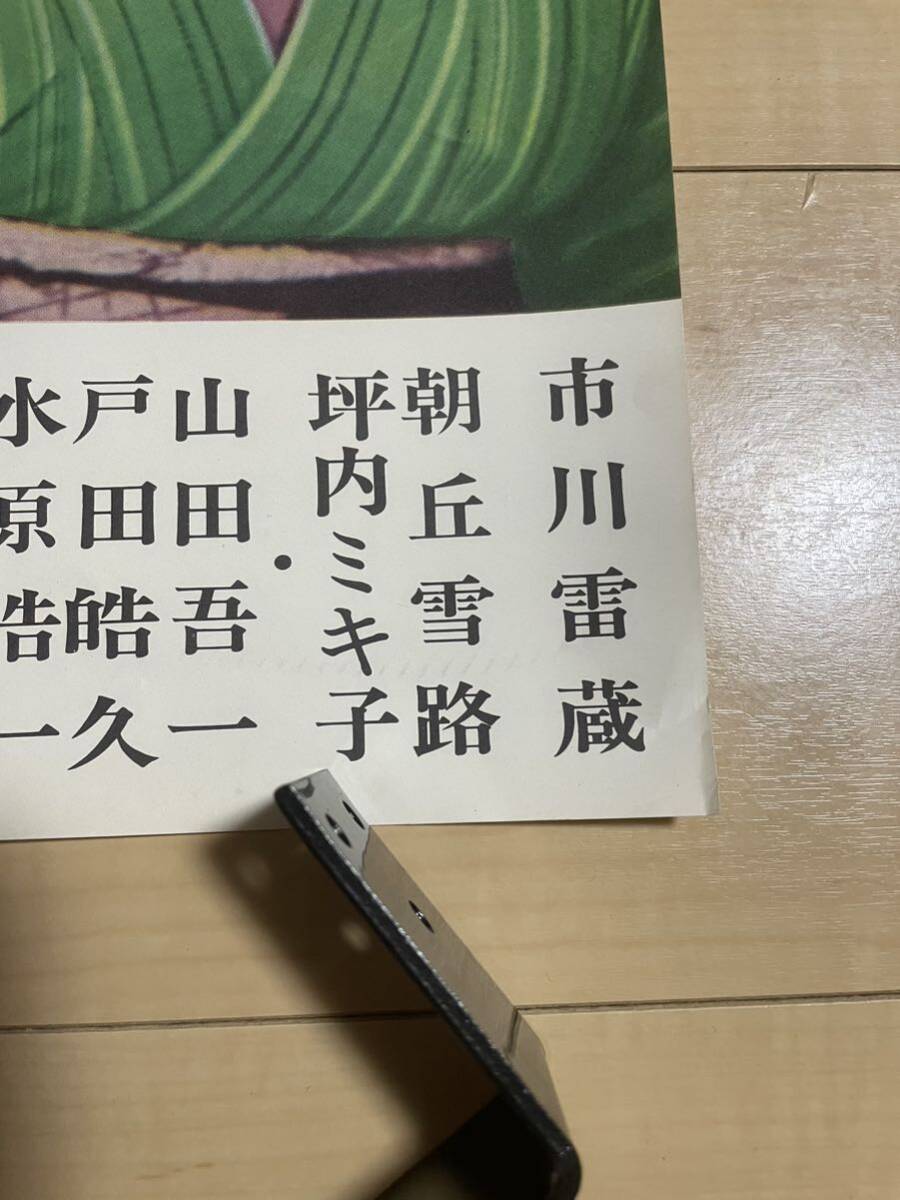 市川雷蔵
朝丘雪路
坪内ミキ子
・
山田吾一
戸田皓久
水原浩一